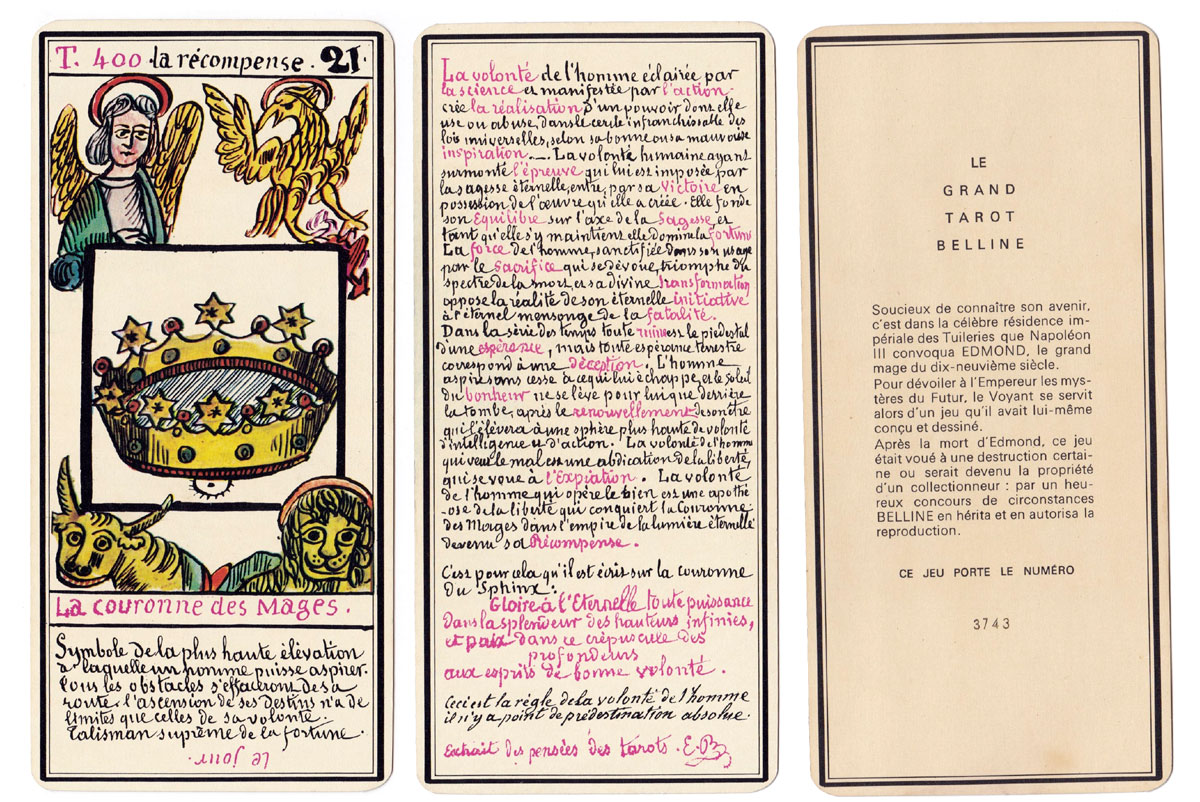 T. 400 la récompense. 21.
La couronne des Mages.
Symbole de la plus haute élévation
à laquelle un homme puisse aspirer.
Tous les obstacles s'effaceront de sa
route. l'ascension de ses destins n'a de
limites que celles de sa volonté.
Talisman suprême de la fortune.
Le jour.
La volonté de l'homme éclairée par
la science et manifestée par l'action
crée la réalisation d'un pouvoir dont elle
use ou abuse, dans le cercle infranchissable des
lois universelles, selon sa bonne ou sa mauvaise
inspiration. _ La volonté humaine ayant
surmonté l'épreuve qui lui est imposée par
la sagesse éternelle, entre, par sa victoire en
possession de l'œuvre qu'elle a créée. Elle fonde
son Equilibre sur l'axe de la Sagesse et
tant qu'elle s'y maintient elle domine la fortune
La force de l'homme, sanctifiée dans son usage
par le Sacrifice qui se dévoue, triomphe du
spectre de la mort, et sa divine transformation
oppose la réalité de son éternelle initiative
à l'éternel mensonge de la fatalité.
Dans la série des temps toute ruine est le piedestal
d'une espérance, mais toute espérance terrestre
correspond à une déception. L'homme
aspire sans cesse à ce qui lui échappe, et le soleil
du bonheur ne se lève pour lui que derrière
la tombe, après le renouvellement de son être
qui l'élèvera à une sphère plus haute de volonté
d'intelligence et d'action. La volonté de l'homme
qui veut le mal est une abdication de la liberté,
qui se voue à l'Expiation. La volonté
de l'homme qui opère le bien est une apothé
-ose de la liberté qui conquiert la Couronne
des Mages dans l'empire de la lumière éternelle
devenu sa Récompense.
C'est pour cela qu'il est écrit sur la couronne
du Sphinx:
Gloire à l'Eternelle toute puissance
dans la splendeur des hauteurs infinies,
et paix dans ce crépuscule des
profondeurs
aux esprits de bonne volonté.
Ceci est la règle de la volonté de l'homme
il n'y a point de prédestination absolue.
Extrait des pensées des tarots. E.B
LE
GRAND
TAROT
BELLINE
Soucieux de connaître son avenir,
c'est dans la célèbre résidence im-
périale des Tuileries que Napoléon
III convoqua EDMOND, le grand
mage du dix-neuvième siècle.
Pour dévoiler à l'Empereur les mys-
tères du Futur, le Voyant se servit
alors d'un jeu qu'il avait lui-même
conçu et dessiné.
Après la mort d'Edmond, ce jeu
était voué à une destruction certai-
ne ou serait devenu la propriété
d'un collectionneur : par un heu-
reux concours de circonstances
BELLINE en hérita et en autorisa la
reproduction.
CE JEU PORTE LE NUMÉRO
3743